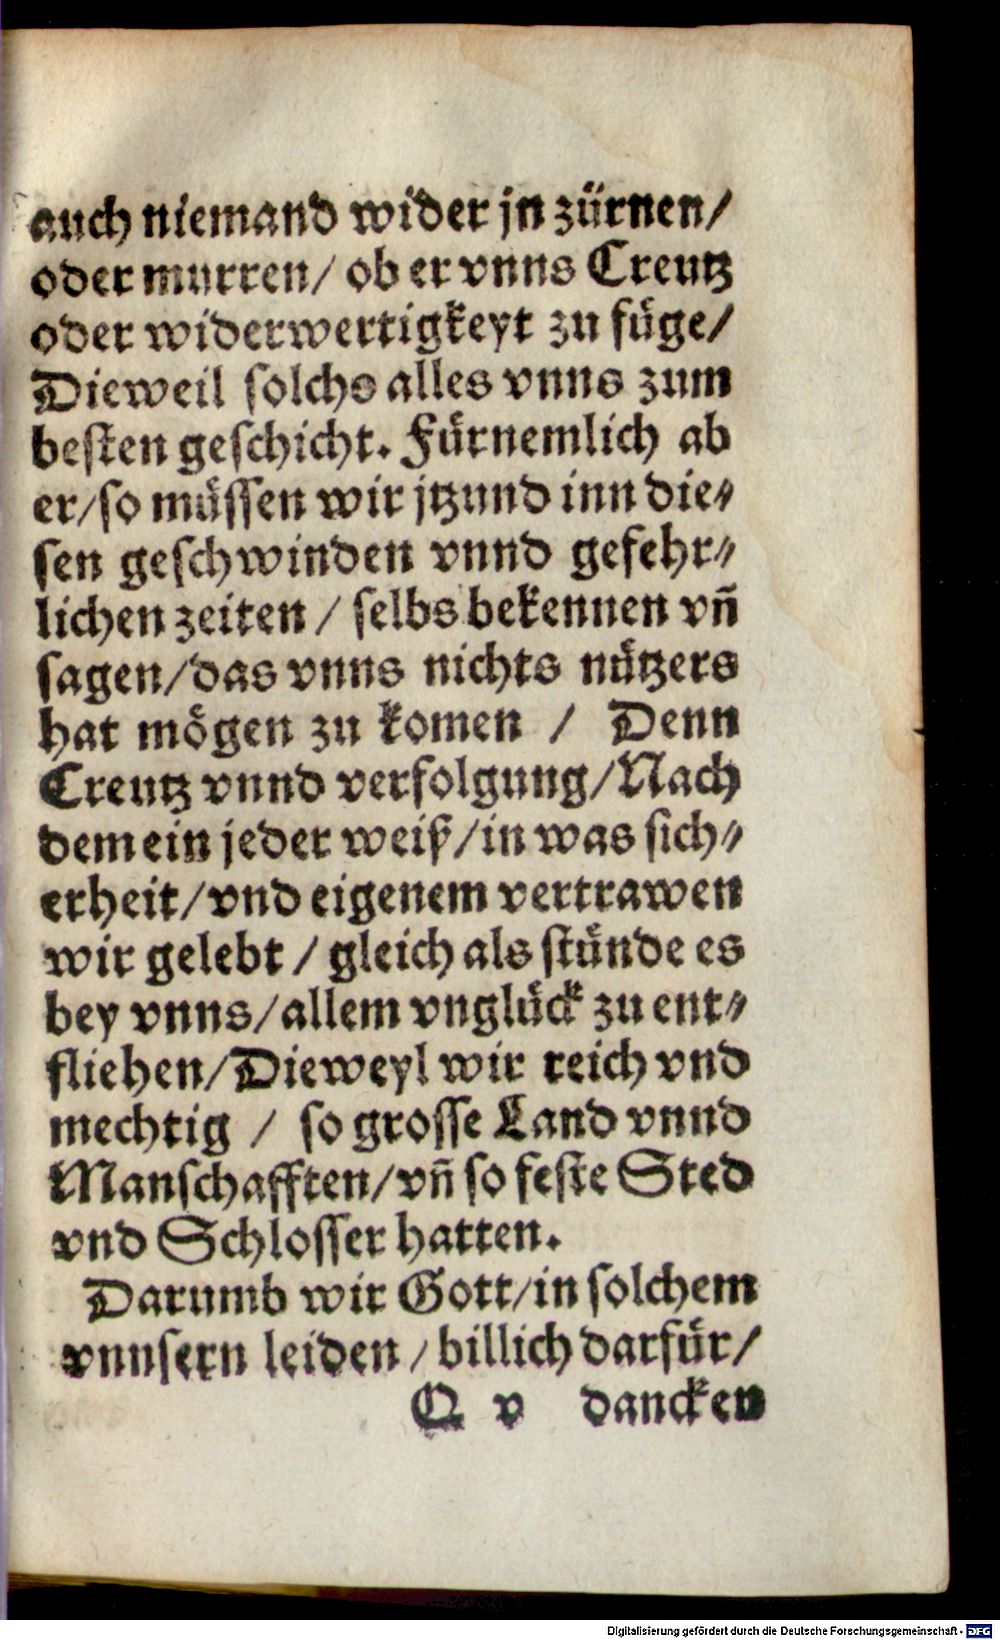 auch niemand wider jn zürnen/
oder murren/ ob er vnns Creutz
oder widerwertigkeyt zu füge/
Dieweil solchs alles vnns zum
besten geschicht. Fürnemlich ab
er/so müssen wir jtzund inn die⸗
sen geschwinden vnnd gefehr⸗
lichen zeiten / selbs bekennen vñ
sagen/das vnns nichts nützers
hat mögen zu komen / Denn
Creutz vnnd verfolgung/Nach
dem ein jeder weiß/in was sich⸗
erheit/vnd eigenem vertrawen
wir gelebt / gleich als stünde es
bey vnns/allem vnglück zu ent⸗
fliehen/Dieweyl wir reich vnd
mechtig / so grosse Land vnnd
Manschafften/vñ so feste Sted
vnd Schlosser hatten.
Darumb wir Gott/in solchem
vnnsern leiden/billich darfür/
Q v dancken
Digitalisierung gefördert durch die Deutsche Forschungsgemeinschaft - DFG